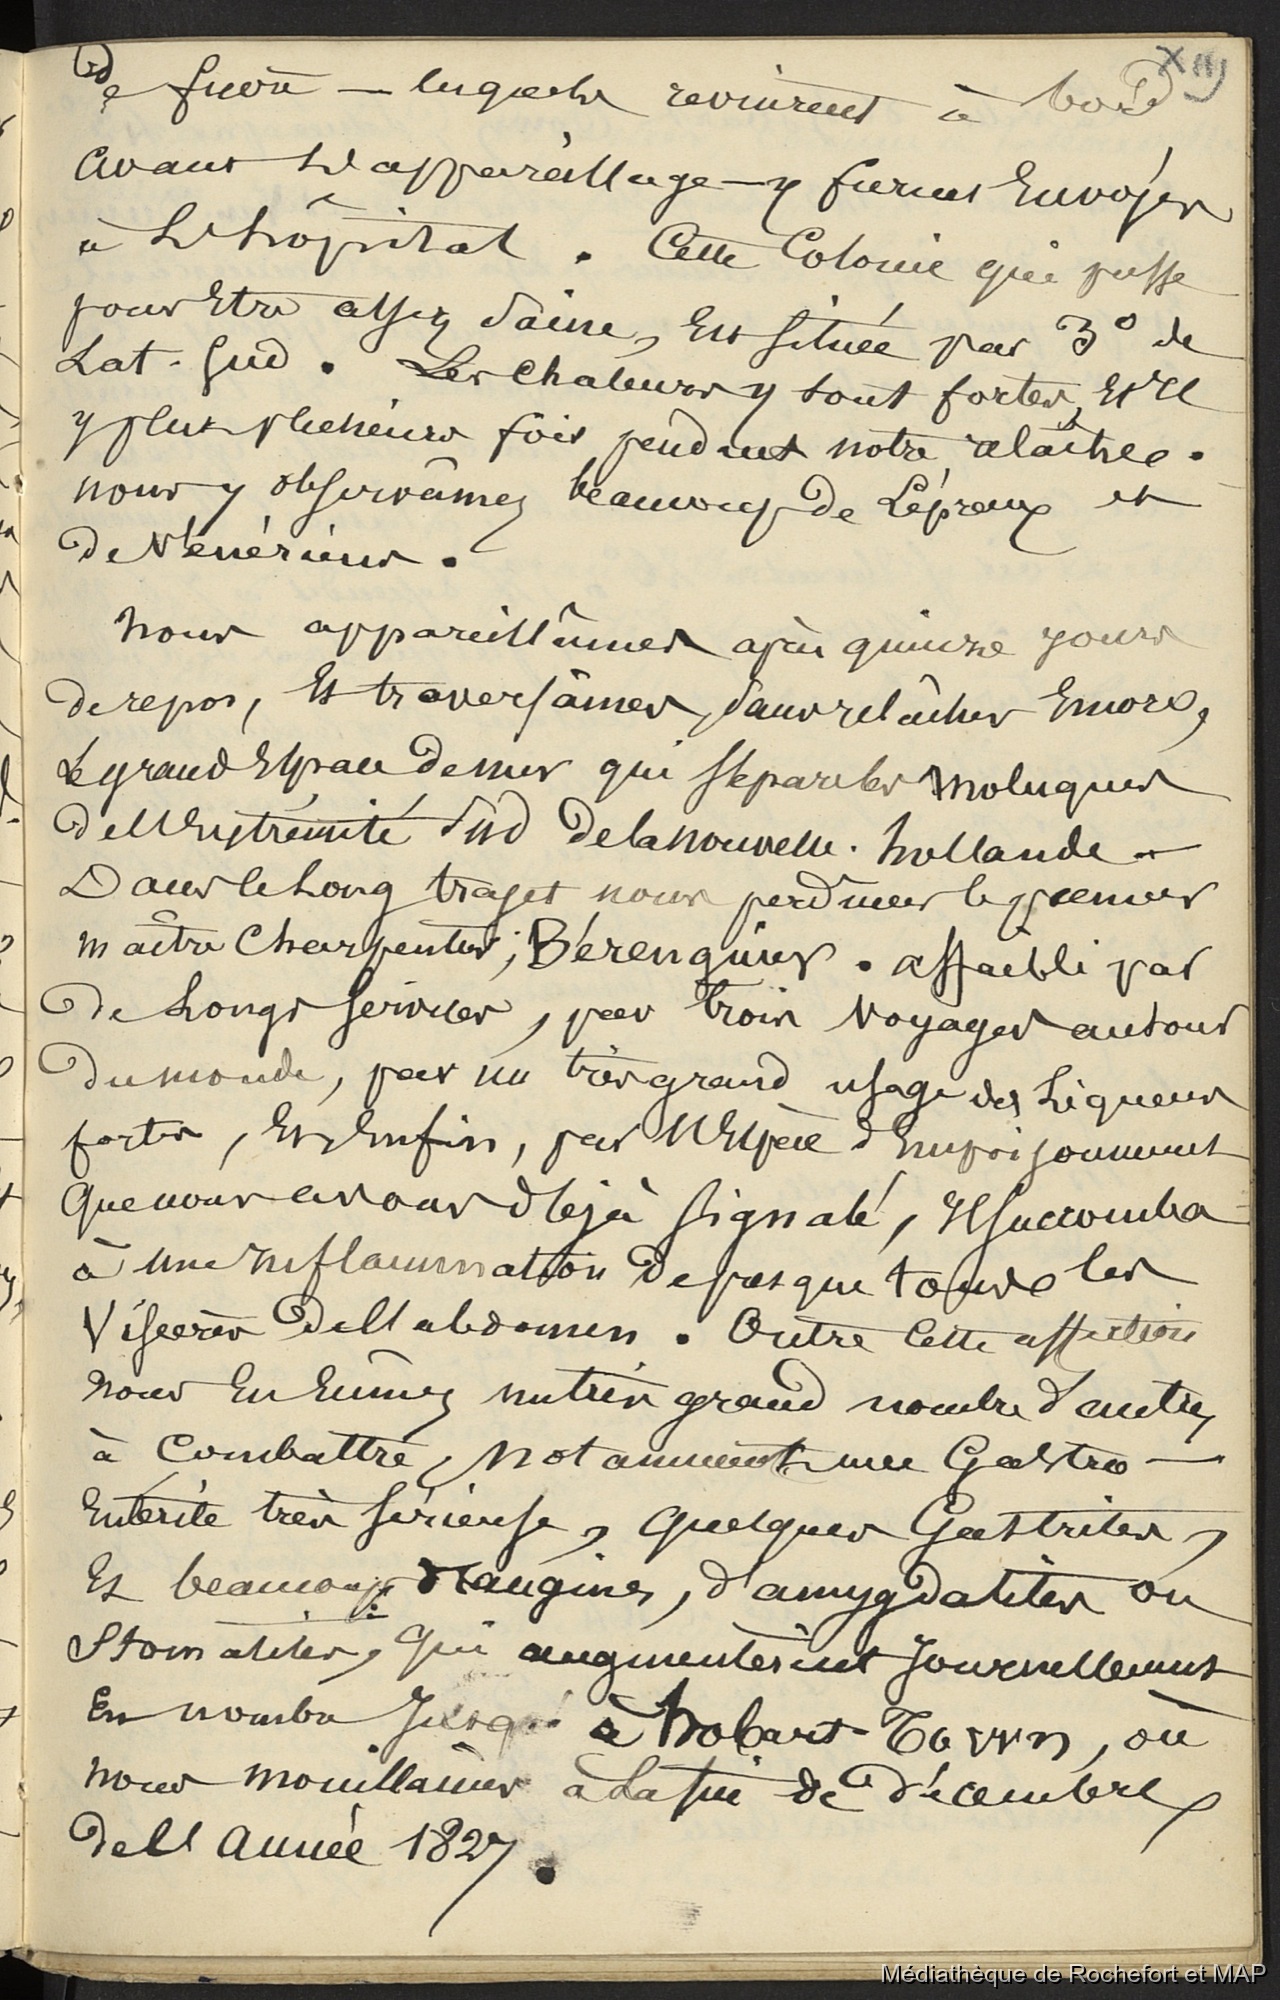 XIII
de fievre — lesquels revinrent à bord
avant l'appareillage — y furent Envoyés
à l'hôpital . Cette Colonie qui passe
pour Etre assez Saine, Est située par 3° de
Lat. Sud . Les Chaleurs y sont fortes, Et il
y plut plusieurs fois pendant notre relâche .
nous y observâmes beaucoup de Lépreux et
de Vénériens .
Nous appareillâmes après quinze jours
de repos, Et traversâmes, sans relâcher Encore,
Le grand Espace de mer qui sépare les Moluques
de l'Extrémité Sud de la nouvelle . hollande —
Dans le Long trajet nous perdîmes le premier
maître Charpentier, Bérenguier . affaibli par
de Longs Services, par trois Voyages autour
du monde, par un très grand usage des Liqueurs
fortes, Et Enfin, par l'Espèce d'Empoisonnement
que nous avons déjà Signalé, Il Succomba
à une Inflammation de presque tous les
Viscères de l'abdomen . Outre Cette affection
nous En Eûmes un très grand nombre d'autres
à Combattre, Notamment une Gastro —
Entérite très Sérieuse, quelques Gastrites,
Et beaucoup d'angines, d'amygdalites ou
Stomatites, qui augmentèrent Journellement
En nombre Jusqu' à hobart-Town, où
nous mouillâmes à La fin de décembre
de l'année 1827 .
Médiathèque de Rochefort et MAP